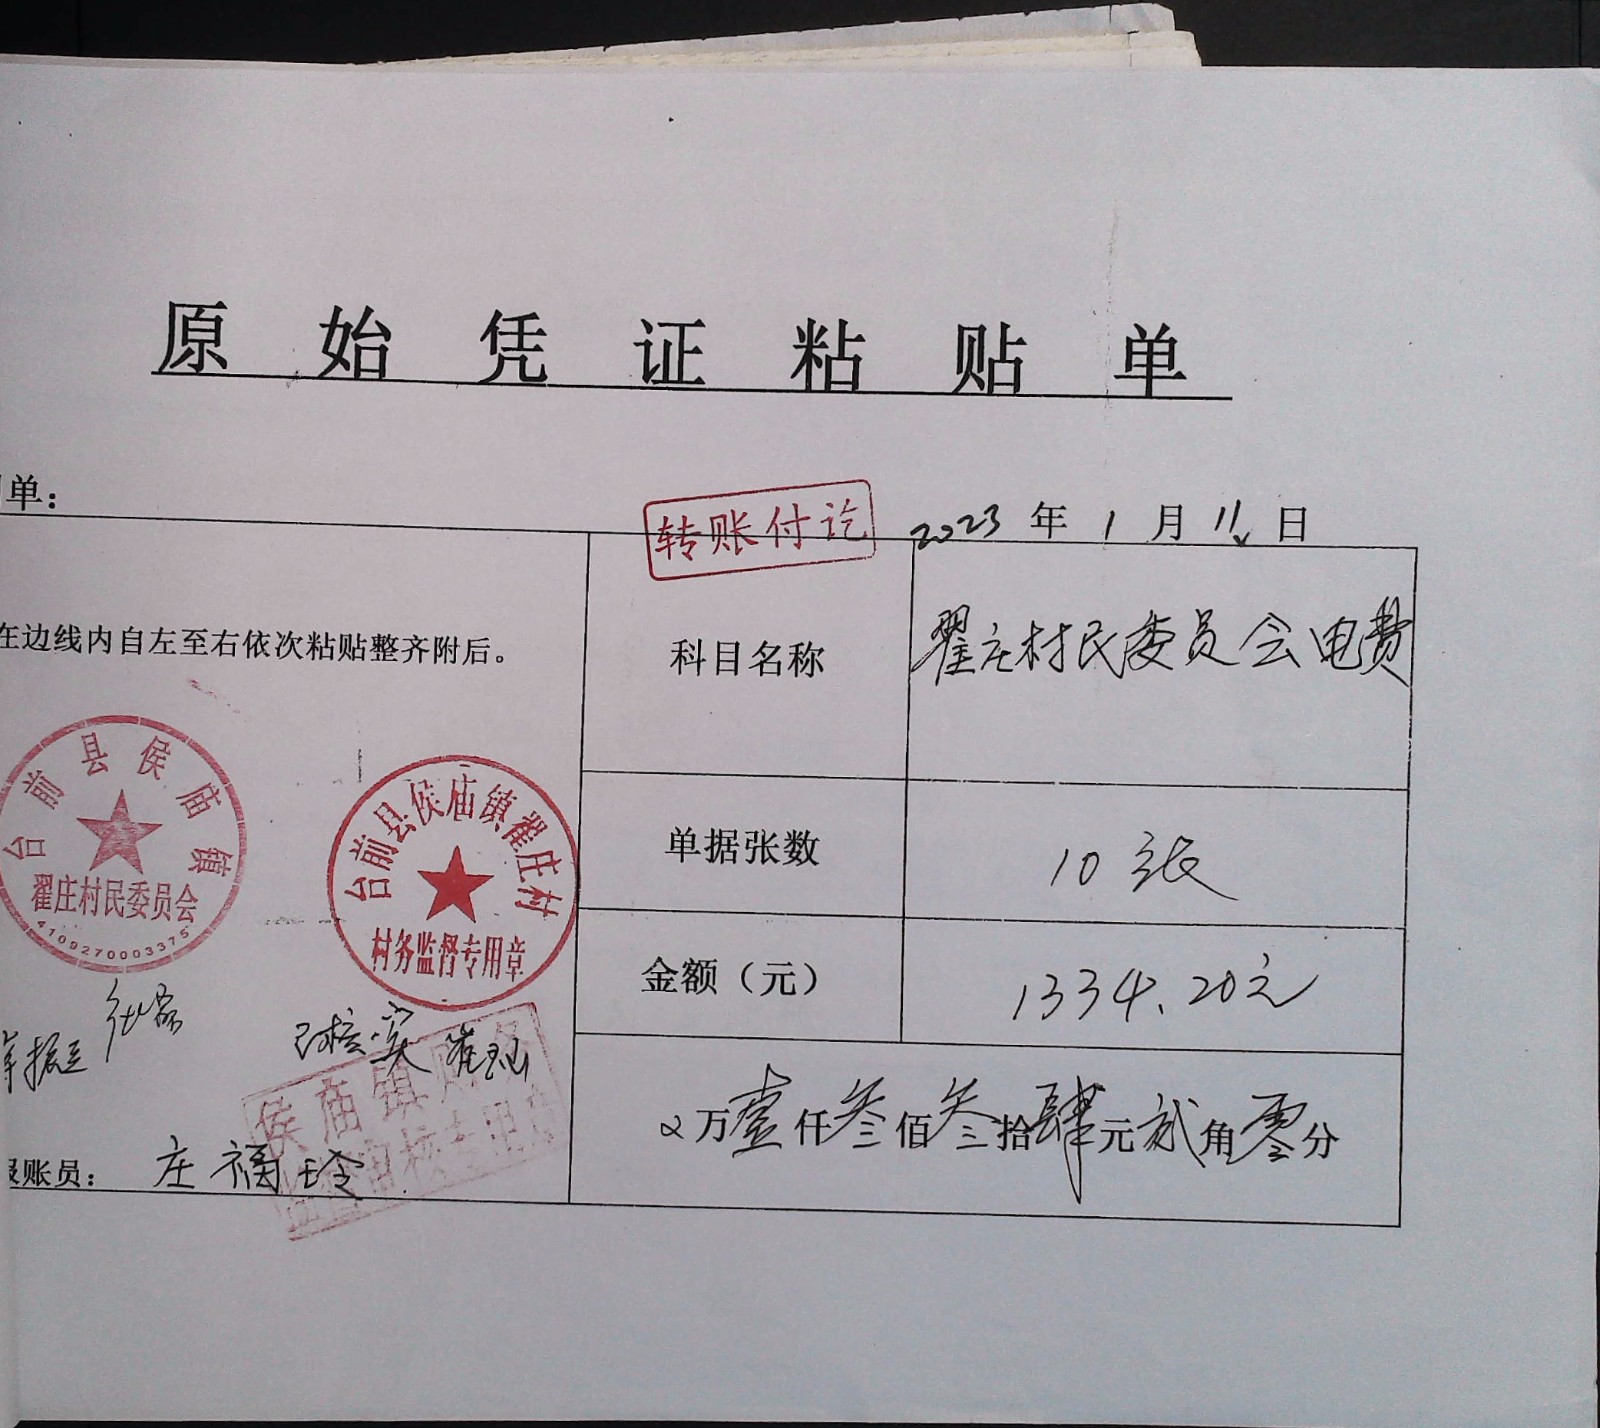 原始凭证粘贴单
单：
转账付讫
2023年1月11日
在边线内自左至右依次粘贴整齐附后。
科目名称
翟庄村民委员会电费
台前县侯庙镇
翟庄村民委员会
4109270003375
台前县侯庙镇翟庄村
村务监督专用章
单据张数
10张
金额（元）
1334.20元
已核实
万壹仟叁佰叁拾肆元贰角零分
侯庙镇财务
审核专用章
账员：庄福玲